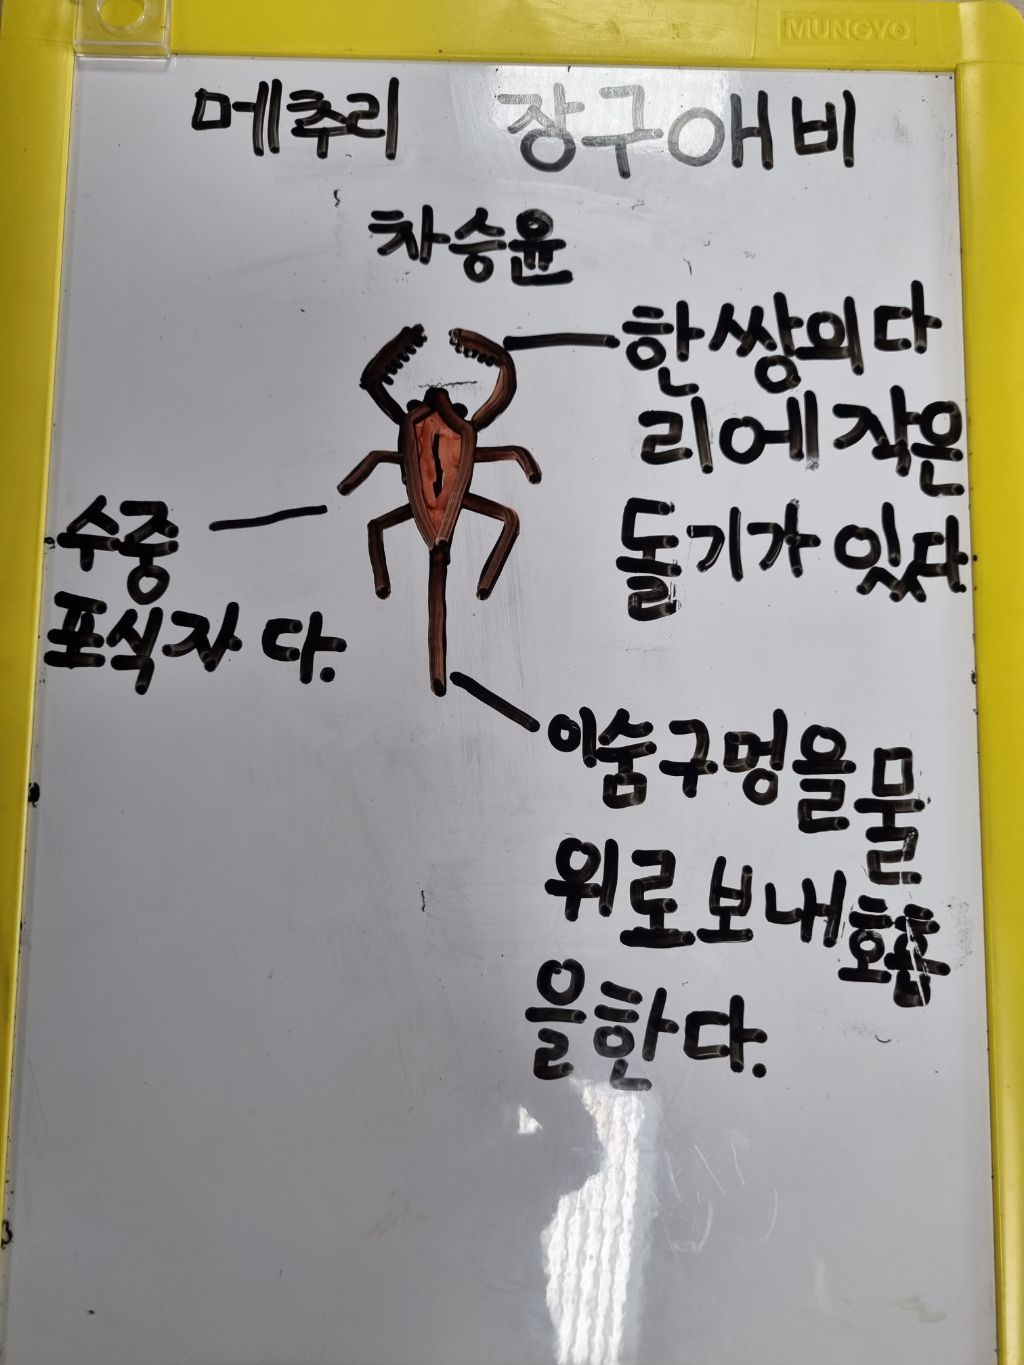 MUNGYO
메추리 장구애비
차승윤
한쌍의다
리에 작은
돌기가 있다
수중
포식자 다.
이숨구멍을물
위로보내호흡
을한다.